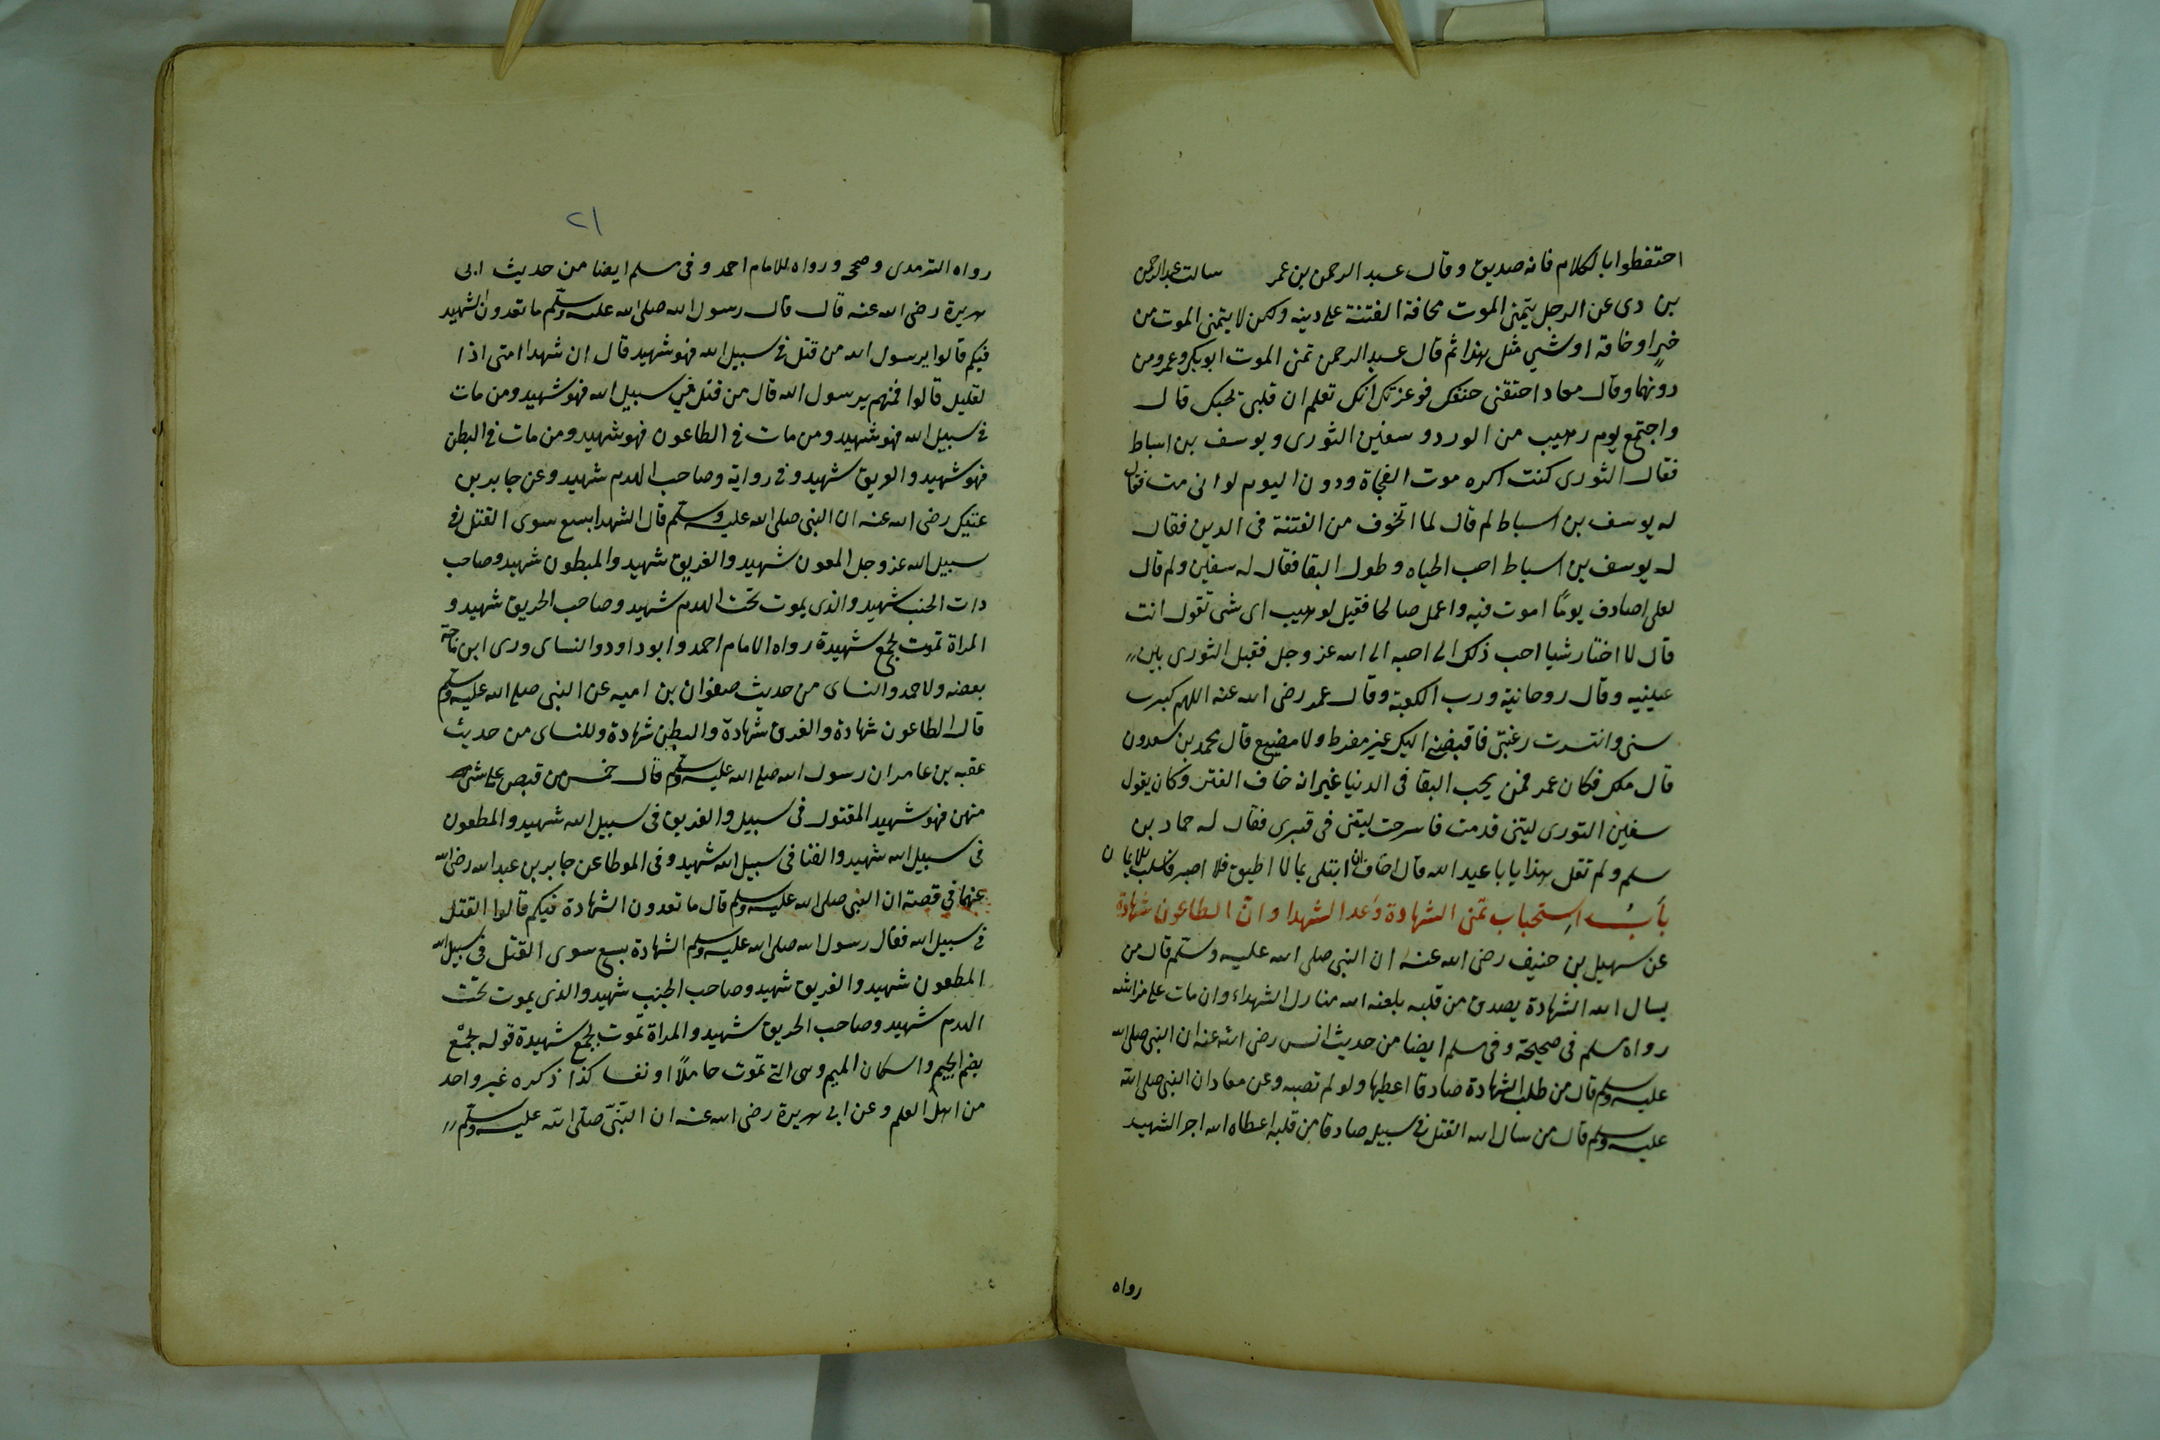 احتفطوا بالكلام فانه صديق وقال عبد الرحمن بن عمر سالت عبد الرحمن
بن دى عن الرجل يتمنى الموت مخافة الفتنة على دينه ولكن لا يتمنى الموت من
خبر او خافة او شي مثل هذا ثم قال عبد الرحمن تمن الموت ابو بكر وعمر ومن
دونهما وقال معاد احتقنى حنقك فوعزتك انك تعلم ان قلبى يحبك قال
واجتمع يوم رهيب من الورد و سفين الثورى و يوسف بن اسباط
فقال الثورى كنت اكره موت الفجاة ودون اليوم لو انى مت فقال
له يوسف بن اسباط لم قال لما اتخوف من الفتنة فى الدين فقال
له يوسف بن اسباط احب الحياه وطول البقا فقال له سفين ولم قال
لعلى اصادف يوما اموت فيه واعمل صالحا فقيل لوهيب اى شى تقول انت
قال لا اختار شيا احب ذلك الى احبه الى الله عز وجل فقبل الثورى بين
عينيه وقال روحانية ورب الكعبة وقال عمر رضى الله عنه اللهم كبرت
سنى وانتسرت رغبتى فاقبضنى اليك غير مفرط ولا مضيع قال محمد بن سعدون
قال ملك فكان عمر فمن يحب البقا فى الدنيا غير انه خاف الفتن وكان يقول
سفين الثورى ليتنى قدمت فاسرحت ليتنى فى قبرى فقال له حماد بن
سلم ولم تقل هذا يابا عبد الله قال اخاف ان ابتلى بما لا اطيق فلا اصبر
باب استحباب تمن الشهادة وعد الشهدا وان الطاعون شهادة
عن سهيل بن حنيف رضى الله عنه ان النبى صلى الله عليه وسلم قال من
يسال الله الشهادة يصدق من قلبه بلغه الله منازل الشهداء وان مات على فراشه
رواه مسلم فى صحيحة وفى مسلم ايضا من حديث انس رضى الله عنه ان النبى صلى الله
عليه وسلم قال من طلب الشهادة صادقا اعطيها ولو لم تصبه وعن معاد ان النبى صلى الله
عليه وسلم قال من سال الله القتل فى سبيله صادقا من قلبه اعطاه الله اجر الشهيد
رواه
٢١
رواه الترمدى وصحح ورواه للامام احمد وفى مسلم ايضا من حديث ابى
هريرة رضى الله عنه قال قال رسول الله صلى الله عليه وسلم ما تعدون الشهيد
فيكم قالوا يرسول الله من قتل فى سبيل الله فهو شهيد قال ان شهدا امتى اذا
لقليل قالوا فمنهم يرسول الله قال من قتل فى سبيل الله فهو شهيد ومن مات
فى سبيل الله فهو شهيد ومن مات فى الطاعون فهو شهيد ومن مات فى البطن
فهو شهيد والغريق شهيد وفى رواية وصاحب الهدم شهيد وعن جابر بن
عتيك رضى الله عنه ان النبى صلى الله عليه وسلم قال الشهدا بسبع سوى القتل فى
سبيل الله عز وجل المعون شهيد والغريق شهيد والمبطون شهيد وصاحب
دات الجنب شهيد والذى يموت تحت الهدم شهيد وصاحب الحريق شهيد و
المراة تموت بجمع شهيدة رواه الامام احمد وابو داود والنساى ورى ابن ماجة
بعضه ولاحمد والنساى من حديث صفوان بن اميه عن النبى صلى الله عليه وسلم
قال الطاعون شهادة والغرق شهادة والبطن شهادة وللنساى من حديث
عقبه بن عامر ان رسول الله صلى الله عليه وسلم قال خمس من قبص على شى
منهن فهو شهيد المقتول فى سبيل والغريق فى سبيل الله شهيد والمطعون
فى سبيل الله شهيد والفنا فى سبيل الله شهيد وفى الموطا عن جابر بن عبد الله رضى الله
عنهما فى قصة ان النبى صلى الله عليه وسلم قال ما تعدون الشهادة فيكم قالوا القتل
فى سبيل الله فقال رسول الله صلى الله عليه وسلم الشهادة بسبع سوى القتل فى سبيل الله
المطعون شهيد والغريق شهيد وصاحب الجنب شهيد والذى يموت تحت
الهدم شهيد وصاحب الحريق شهيد والمراة تموت بجمع شهيدة قوله بجمع
بضم الجيم واسكان الميم وهى التى تموت حاملا او نفسا كذا ذكره غير واحد
من اهل العلم وعن ابى هريرة رضى الله عنه ان النبى صلى الله عليه وسلم